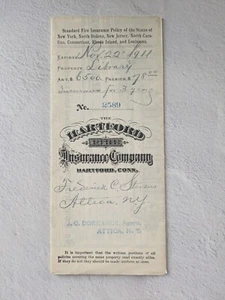 Standard Fire Insurance Policy of the States of
New York, North Dakota, New Jersey, North
Connecticut, Rhode Island, and Louisiana.
Nov 22 1911
Library
6500
Insurance for 3 years
No. 2589
THE
HARTFORD
FIRE
Insurance Company
HARTFORD, CONN.
Frederick C.
Attica, NY
ATTICA, N. Y.
It is important that the written portions of all
policies covering the same property read exactly alike.
If they do not they should be made uniform at once.